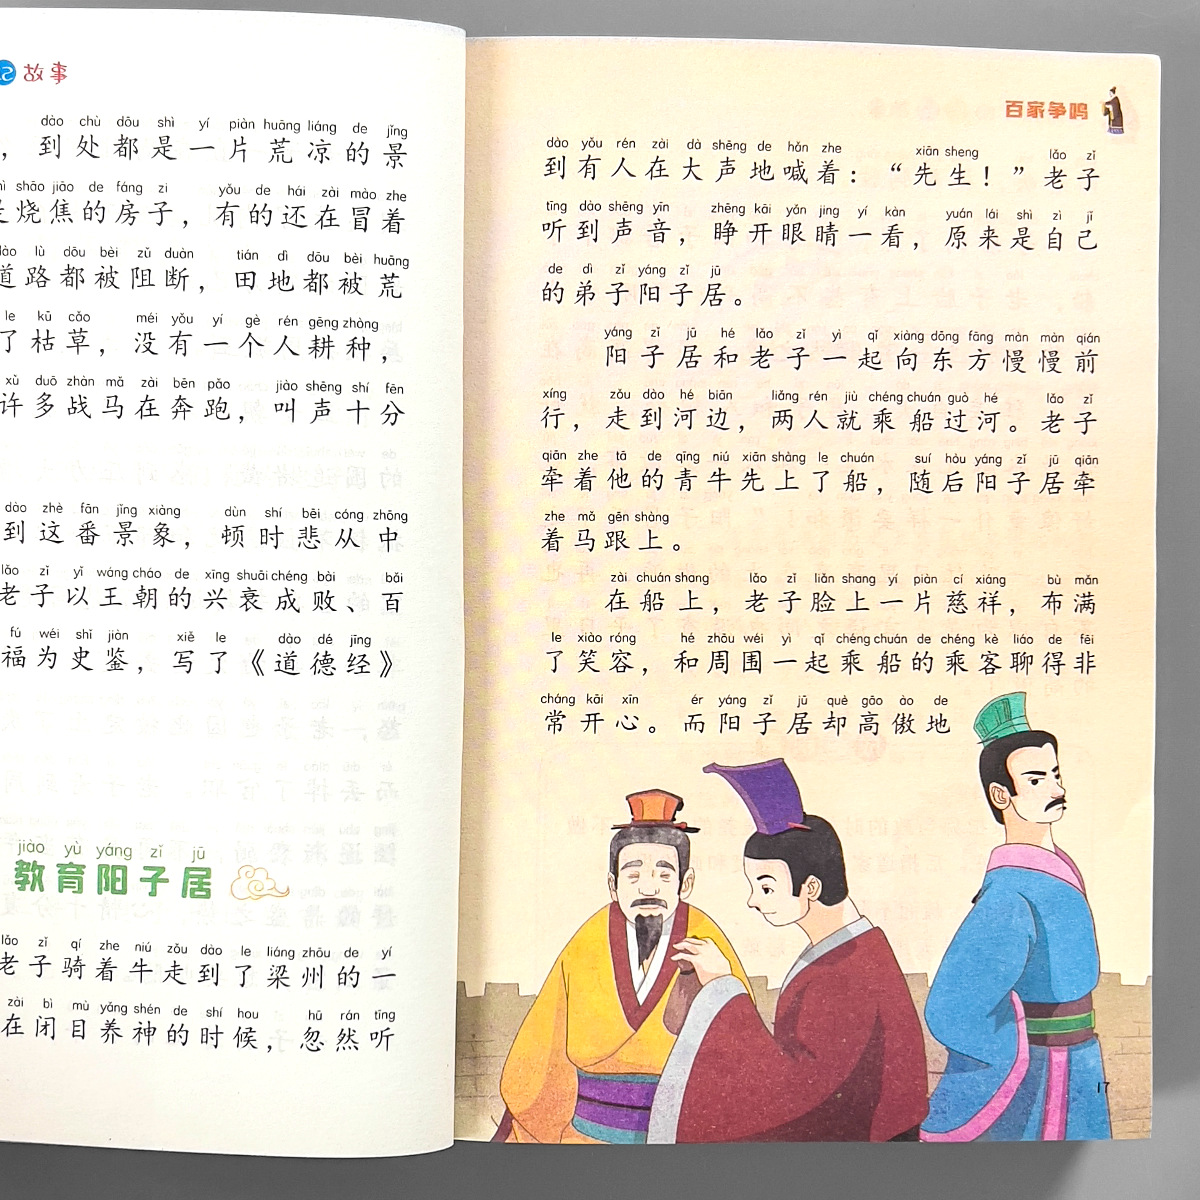 故事
dào chù dōu shì yí piàn huāng liáng de jǐng
，到处都是一片荒凉的景
shāo jiāo de fáng zi yǒu de hái zài mào zhe
是烧焦的房子，有的还在冒着
dào lù dōu bèi zǔ duàn tián dì dōu bèi huāng
道路都被阻断，田地都被荒
le kū cǎo méi yǒu yí gè rén gēng zhòng
了枯草，没有一个人耕种，
xǔ duō zhàn mǎ zài bēn pǎo jiào shēng shí fēn
许多战马在奔跑，叫声十分
dào zhè fān jǐng xiàng dùn shí bēi cóng zhōng
到这番景象，顿时悲从中
lǎo zǐ yǐ wáng cháo de xīng shuāi chéng bài bǎi
老子以王朝的兴衰成败、百
fú wéi shǐ jiàn xiě le dào dé jīng
福为史鉴，写了《道德经》
jiào yù yáng zǐ jū
教育阳子居
lǎo zǐ qí zhe niú zǒu dào le liáng zhōu de yí
老子骑着牛走到了梁州的一
zài bì mù yǎng shén de shí hou hū rán tīng
在闭目养神的时候，忽然听
百家争鸣
dào yǒu rén zài dà shēng de hǎn zhe xiān sheng lǎo zǐ
到有人在大声地喊着：“先生！”老子
tīng dào shēng yīn zhēng kāi yǎn jing yí kàn yuán lái shì zì jǐ
听到声音，睁开眼睛一看，原来是自己
de dì zǐ yáng zǐ jū
的弟子阳子居。
yáng zǐ jū hé lǎo zǐ yì qǐ xiàng dōng fāng màn màn qián
阳子居和老子一起向东方慢慢前
xíng zǒu dào hé biān liǎng rén jiù chéng chuán guò hé lǎo zǐ
行，走到河边，两人就乘船过河。老子
qiān zhe tā de qīng niú xiān shàng le chuán suí hòu yáng zǐ jū qiān
牵着他的青牛先上了船，随后阳子居牵
zhe mǎ gēn shàng
着马跟上。
zài chuán shang lǎo zǐ liǎn shang yí piàn cí xiáng bù mǎn
在船上，老子脸上一片慈祥，布满
le xiào róng hé zhōu wéi yì qǐ chéng chuán de chéng kè liáo de fēi
了笑容，和周围一起乘船的乘客聊得非
cháng kāi xīn ér yáng zǐ jū què gāo ào de
常开心。而阳子居却高傲地
17